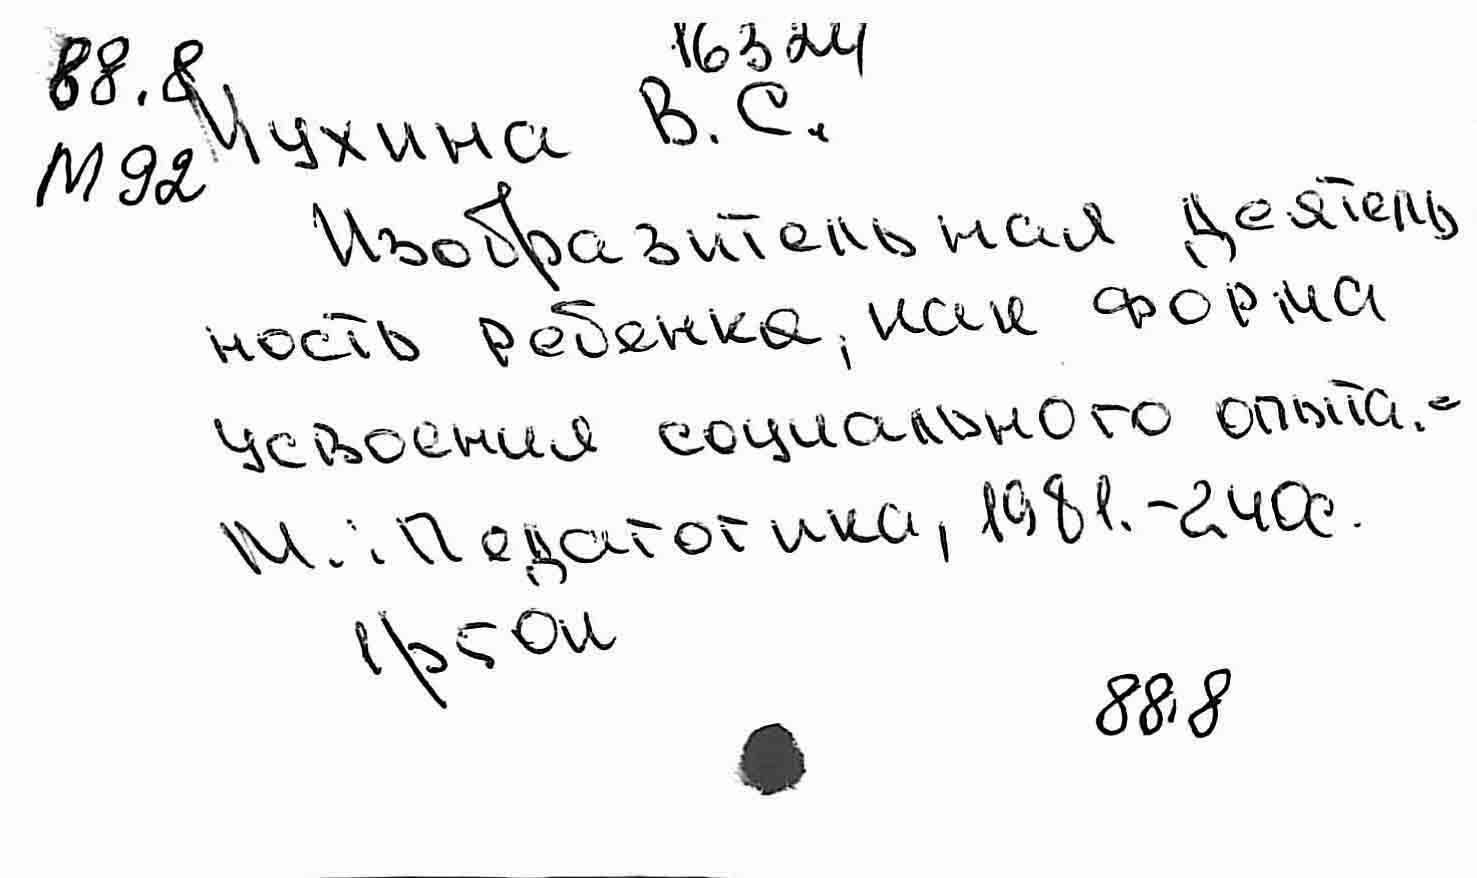 16324
88.8 Мухина В. С.
М92
Изобразительная деятель
ность ребенка, как форма
усвоения социального опыта.-
М.: Педагогика, 1981.-240с.
1р50к
88.8